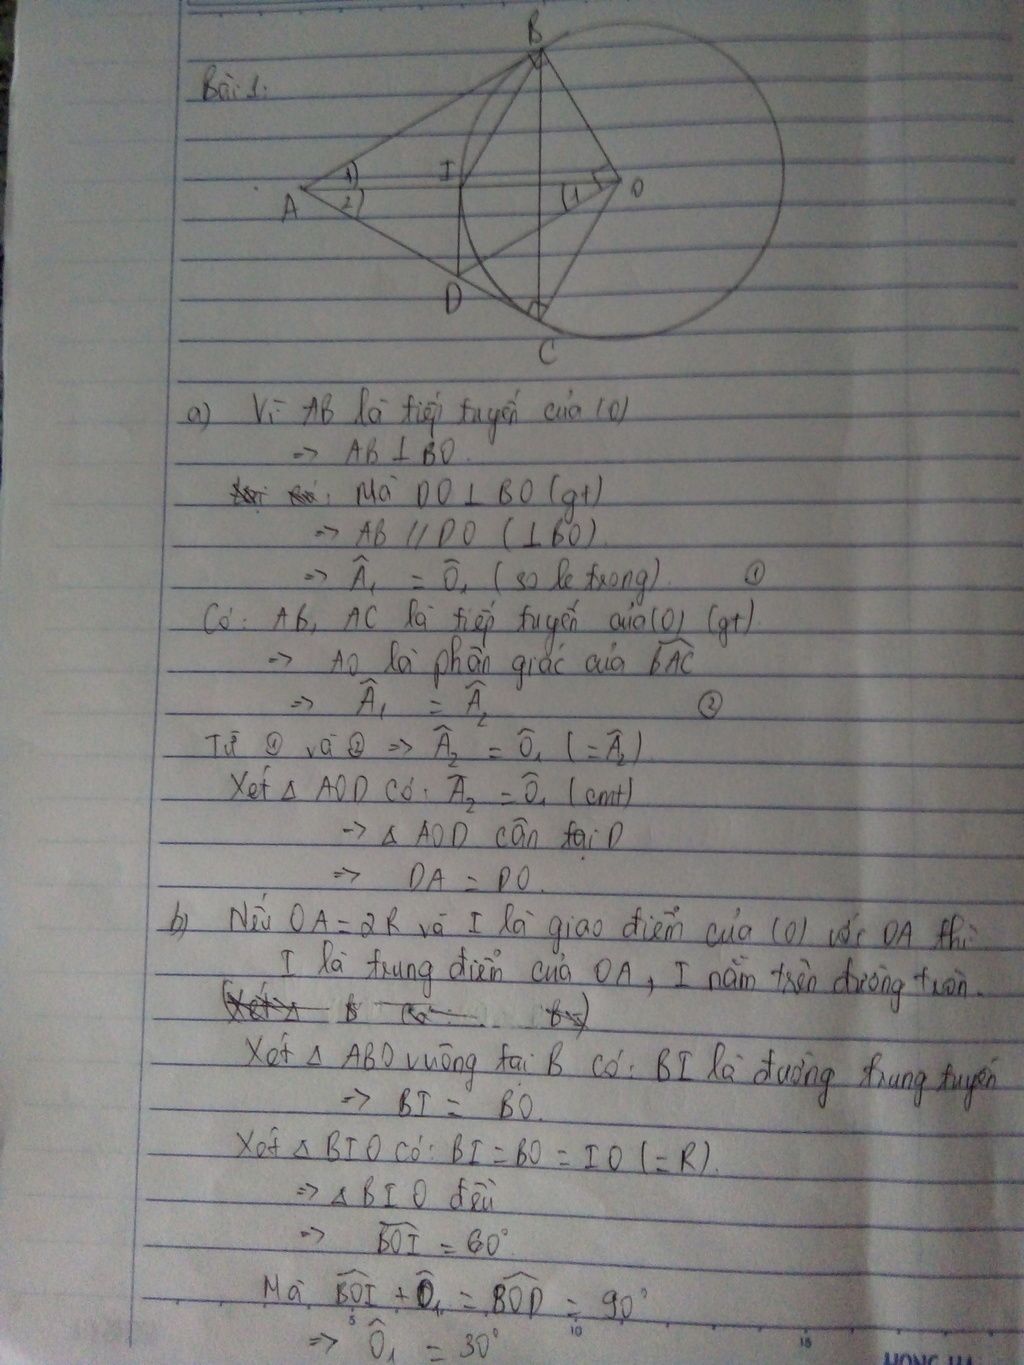 Bài 1.
B
A
1
2
I
1
O
D
C
a) Vì AB là tiếp tuyến của (O)
=> AB ⊥ BO.
Mà DO ⊥ BO (gt)
=> AB // DO (⊥ BO).
=> Â₁ = Ô₁ (so le trong). ①
Có: AB, AC là tiếp tuyến của (O) (gt).
=> AO là phân giác của BAC
=> Â₁ = Â₂ ②
Từ ① và ② => Â₂ = Ô₁ (= Â₂)
Xét Δ AOD có: Â₂ = Ô₁ (cmt)
=> Δ AOD cân tại D
=> DA = DO.
b) Nếu OA = 2R và I là giao điểm của (O) với OA thì
I là trung điểm của OA, I nằm trên đường tròn.
Xét Δ ABO vuông tại B có: BI là đường trung tuyến
=> BI = BO.
Xét Δ BIO có: BI = BO = IO (= R).
=> Δ BIO đều
=> BOI = 60°
Mà BOI + Ô₁ = BOD = 90°
=> Ô₁ = 30°
5 10 15
HONG HA